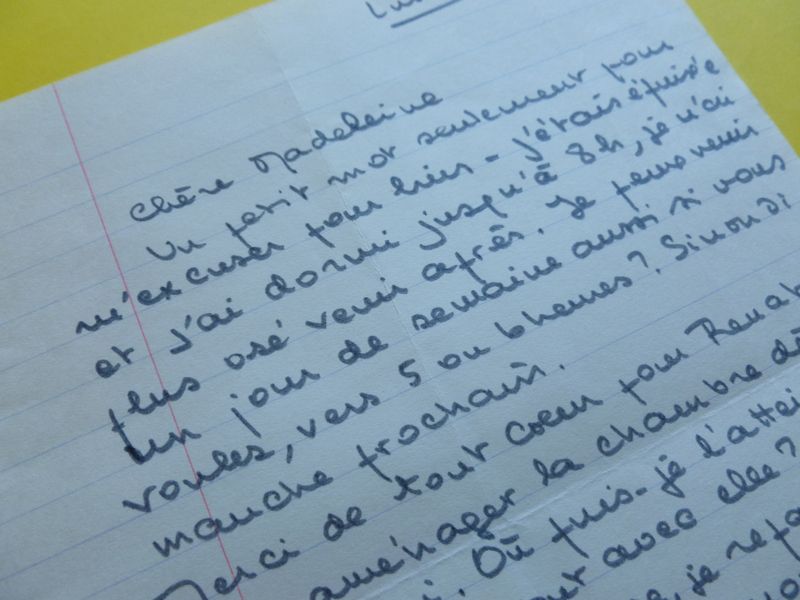 Lun
Chère Madeleine
Un petit mot seulement pour
m'excuser pour hier - j'étais épuisée
et j'ai dormi jusqu'à 8h, je n'ai
plus osé venir après. Je peux venir
un jour de semaine aussi si vous
voulez, vers 5 ou 6 heures? Sinon di
manche prochain.
Merci de tout coeur pour Renat
aménager la chambre de
i. Où puis-je l'attei
avec elle?
je